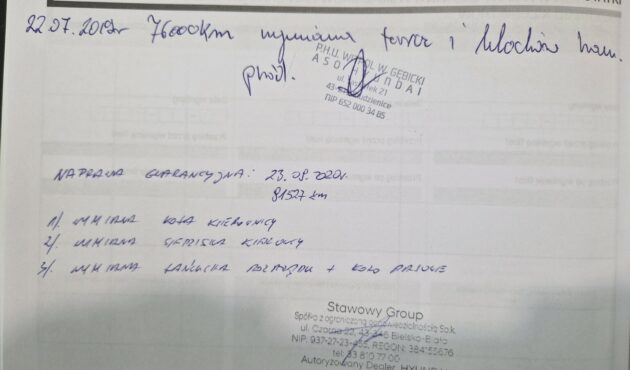 22.07.2019r 76000km wymiana tarcz i klocków ham.
przód.
P.H.U. WITPOL W. GĘBICKI
ASO HYUNDAI
ul. 21
43- dzienice
NIP 652 000 34 85
NAPRAWA GWARANCYJNA: 23.09.2020r.
91527 km
1/. WYMIANA KOŁA KIEROWNICY
2/. WYMIANA SIEDZISKA KIEROWCY
3/. WYMIANA ŁAŃCUCHA ROZRZĄDU + KOŁO PASOWE
Stawowy Group
Spółka z ograniczoną odpowiedzialnością Sp.k.
ul. Czarna 22, 43-346 Bielsko-Biała
NIP: 937-27-23-455, REGON: 384155676
tel: 33 810 77 00
Autoryzowany Dealer